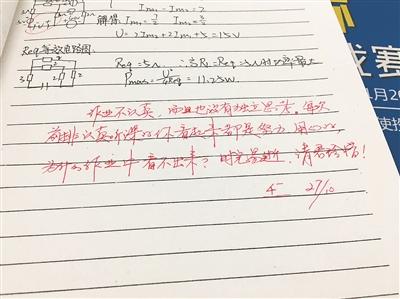 Im₁ = Im₂ = 2
解得 Im₁ = 7/2 Im₂ = 3/2
U = 2Im₂ + 2Im₁ + 5 = 15V
Req 等效电路图
Req = 5Ω ∴当RL = Req = 5Ω时功率最大
Pmax = U²/4Req = 11.25W
作业不认真,而且也没有独立思考。每次
前排认真听课的你看起来都是努力用功的,
为什么作业中看不出来?时光易逝,请君珍惜!
27/10
赛